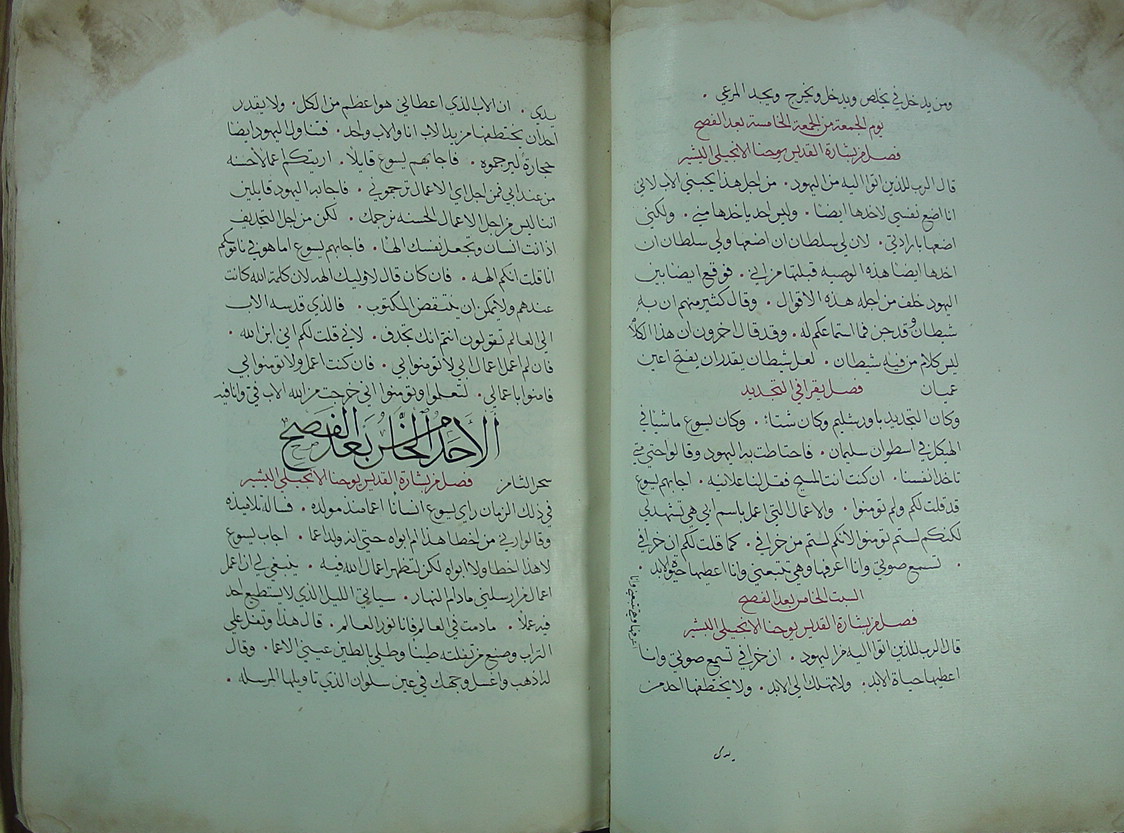 ومن يدخل في يخلص ويدخل ويخرج ويجد المرعي .
يوم الجمعة من الجمعة الخامسة بعد الفصح
فصل من بشارة القديس يوحنا الانجيلي البشير
قال الرب للذين اتوا اليه من اليهود . من اجل هذا يحبني الاب لاني
انا اضع نفسي لاخذها ايضا . وليس احد ياخذها مني . ولكني
اضعها بارادتي . لان لي سلطان ان اضعها ولي سلطان ان
اخذها ايضا هذه الوصية قبلتها من ابي . فوقع ايضا بين
اليهود خلف من اجل هذه الاقوال . وقال كثير منهم ان به
شيطان وقد جن فما استماعكم له . وقد قال اخرون ان هذا الكلام
ليس كلام من فيه شيطان . لعل شيطان يقدر ان يفتح اعين
عميان فصل يقرا في التجديد
وكان التجديد باورشليم وكان شتاء . وكان يسوع ماشيا في
الهيكل في اسطوان سليمان . فاحتاطت به اليهود وقالوا حتي متي
تاخذ نفسنا . ان كنت انت المسيح فقل لنا علانيه . اجابهم يسوع
قد قلت لكم ولم تومنوا . والاعمال التي اعمل باسم ابي هي تشهد لي
لكنكم لستم تومنوا لانكم لستم من خرافي . كما قلت لكم ان خرافي
تسمع صوتي وانا اعرفها وهي تتبعني وانا اعطيها حيوة الابد .
السبت الخامس بعد الفصح
فصل من بشارة القديس يوحنا الانجيلي البشير
قال الرب للذين اتوا اليه من اليهود . ان خرافي تسمع صوتي وانا
اعرفها وهي تتبعني وانا
اعطيها حياة الابد . ولا تهلك الي الابد . ولا يخطفها احد من
يدي
يدي . ان الاب الذي اعطاني هو اعظم من الكل . ولا يقدر
احد ان يخطفها من يد الاب انا والاب واحد . فتناول اليهود ايضا
حجارة ليرجموه . فاجابهم يسوع قايلا . اريتكم اعمالا حسنه
من عند ابي فمن اجل اي الاعمال ترجموني . فاجابه اليهود قايلين
اننا ليس من اجل الاعمال الحسنه نرجمك . لكن من اجل التجديف
اذ انت انسان وتجعل نفسك الها . فاجابهم يسوع اما هو في ناموسكم
انا قلت انكم الهة . فان كان قال لاوليك الهه لان كلمة الله كانت
عندهم ولا يمكن ان ينتقض المكتوب . فالذي قدسه الاب
الي العالم تقولون انتم انك تجدف . لاني قلت لكم اني ابن الله .
فان لم اعمل اعمال ابي لا تومنوا بي . فان كنت اعمل ولا تومنوا بي
فامنوا باعمالي . لتعلموا وتومنوا اني خرجت من الله الاب في وانا فيه
الاحد الخامس بعد الفصح
سحر الثامن فصل من بشارة القديس يوحنا الانجيلي البشير
في ذلك الزمان راي يسوع انسانا اعما منذ مولده . فساله تلاميذه
وقالوا ربي من اخطا هذا ام ابواه حتي انه ولد اعما . اجاب يسوع
لا هذا اخطا ولا ابواه لكن لتظهر اعمال الله فيه . ينبغي لي ان اعمل
اعمال من ارسلني مادام النهار . سياتي الليل الذي لا يستطيع احد
فيه عملا . مادمت في العالم فانا نور العالم . قال هذا وتفل علي
التراب وصنع من تفلته طينا وطلي بالطين عيني الاعما . وقال
له اذهب واغسل وجهك في عين سلوان الذي تاويلها المرسله .